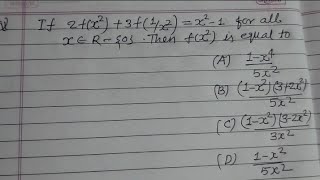 If 2f(x²)+3f(1/x²)=x²-1 for all
x∈R-{0}. Then f(x²) is equal to
(A) 1-x⁴/5x²
(B) (1-x²)(3+2x²)/5x²
(C) (1-x²)(3-2x²)/3x²
(D) 1-x²/5x²